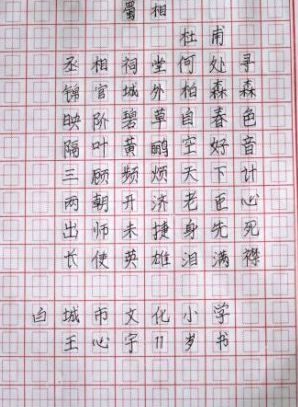 蜀相
杜甫
丞相祠堂何处寻
锦官城外柏森森
映阶碧草自春色
隔叶黄鹂空好音
三顾频烦天下计
两朝开济老臣心
出师未捷身先死
长使英雄泪满襟
白城市文化小学
王心宇11岁书